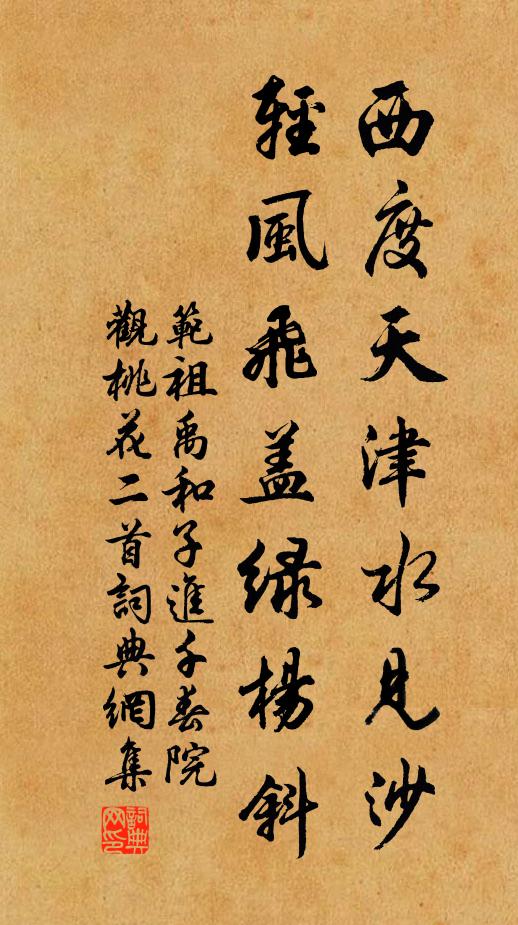 西度天津水見沙
輕風飛蓋緑楊斜
範祖禹和子進千春院
觀桃花二首詞典網集
詞典
网印